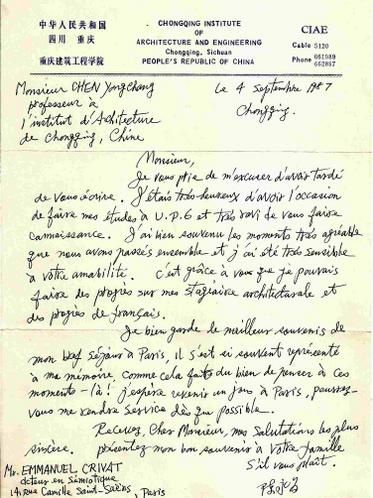 中华人民共和国
四川 重庆
重庆建筑工程学院
CHONGQING INSTITUTE
OF
ARCHITECTURE AND ENGINEERING
Chongqing, Sichuan
PEOPLE'S REPUBLIC OF CHINA
CIAE
Cable 5120
Phone 661989
662857
Monsieur CHEN Yongchang
professeur à
l'institut d'Achitecture
de Chongqing, Chine
Le 4 septembre 1987
Chongqing.
Monsieur,
Je vous prie de m'excurer d'avoir tardé
de vous écrire. J'étais très-heureux d'avoir l'occasion
de faire mes études à U.P.6 et très ravi de vous faire
connaissance. J'ai bien souvenu les moments très agréable
que nous avons passés ensemble et j'ai été très sensible
à votre amabilité. C'est grâce à vous que je pouvais
faire des progrès sur mes stagiaire architecturale et
des progrès de français.
Je bien garde le meilleur souvenir de
mon bref séjour à Paris, il s'est si souvent représenté
à ma mémoire, comme cela faits du bien de penser à ces
moments-là! j'espère revenir un jour à Paris, pourrez-
vous me rendre service dès que possible.
Recevez, Cher Monsieur, mes salutations les plus
sincère. présentez mon bon souvenir à votre famille
s'il vous plaît.
Mr. EMMANUEL CRIVAT
docteur en Sémiotique
14, Rue Camille Saint-Saëns, Paris